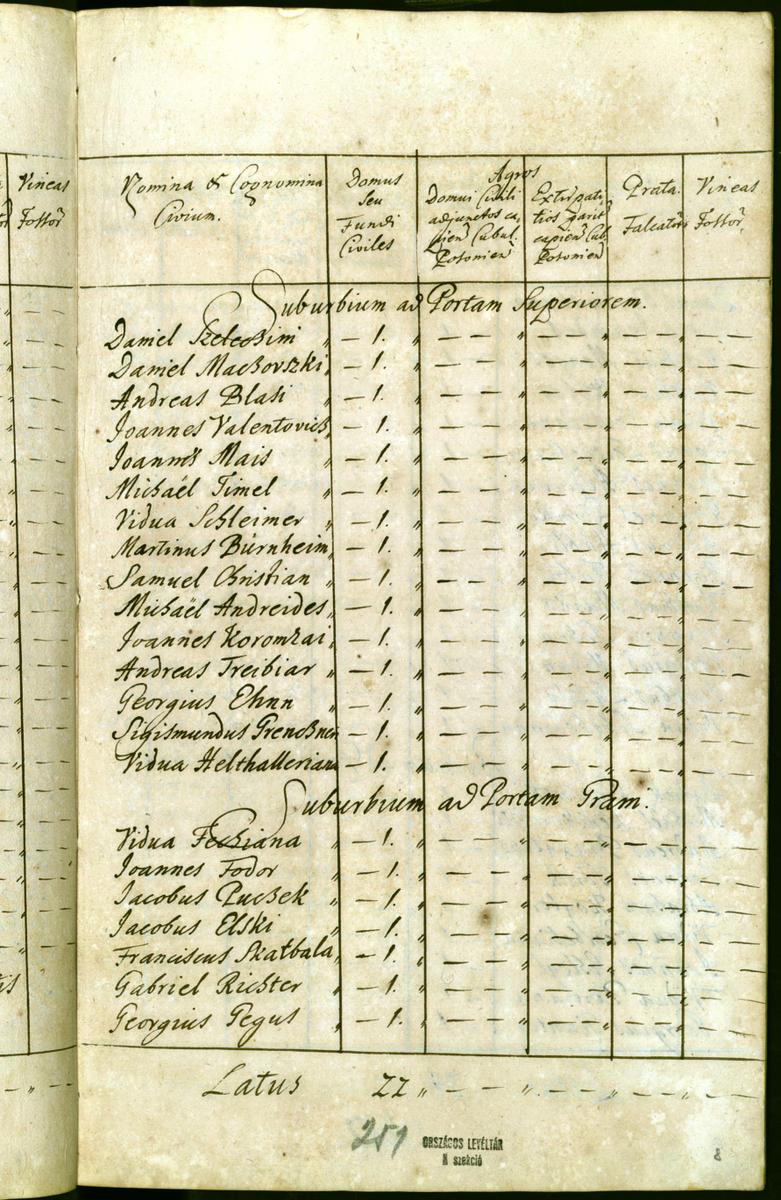 Vineas
Fossor
Nomina & Cognomina
Civium.
Domus
seu
Fundi
Civiles
Agros
Domui Civili
adjunctos ca,
pien Cubul.
Posonien
Extirpati
tios
capien Cub
Posonien
Prata.
Falcator
Vineas
Fossor,
Suburbium ad Portam Superiorem.
Daniel " — 1. " — — " — — — — " — —
Daniel Machovszki " — 1. " — — " — — — — " — —
Andreas Blasi " — 1. " — — " — — — — " — —
Joannes Valentovich " — 1. " — — " — — — — " — —
Joannes Mais " — 1. " — — " — — — — " — —
Michaël Timel " — 1. " — — " — — — — " — —
Vidua Schleimer " — 1. " — — " — — — — " — —
Martinus Bürnheim " — 1. " — — " — — — — " — —
Samuel Christian " — 1. " — — " — — — — " — —
Michaël Andreides " — 1. " — — " — — — — " — —
Joannes Koromzai " — 1. " — — " — — — — " — —
Andreas Treibiar " — 1. " — — " — — — — " — —
Georgius Ehnn " — 1. " — — " — — — — " — —
Sigismundus " — 1. " — — " — — — — " — —
Vidua Helthalleriana — 1. " — — " — — — — " — —
Suburbium ad Portam Grani.
Vidua " — 1. " — — " — — — — " — —
Joannes Fodor " — 1. " — — " — — — — " — —
Jacobus Puchek " — 1. " — — " — — — — " — —
Jacobus Elski " — 1. " — — " — — — — " — —
Franciscus Skatbala " — 1. " — — " — — — — " — —
Gabriel Richter " — 1. " — — " — — — — " — —
Georgius Gegus " — 1. " — — " — — — — " — —
Latus 22 " — — — " — — " — " —
251
ORSZÁGOS LEVÉLTÁR
N szekció
8